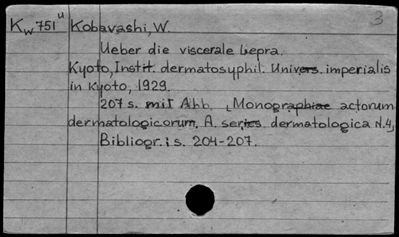 3
Kw 751u Kobavashi, W.
Ueber die viscerale Lepra.
Kyoto, Instit. dermatosyphil. Univers. imperialis
in Kyoto, 1929.
207 s. mit Abb. (Monographiae actorum
dermatologicorum. A. series dermatologica N.4)
Bibliogr.: s. 204-207.